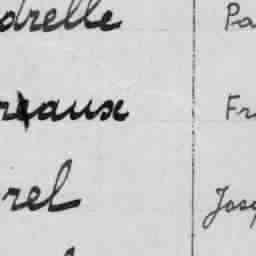 drelle Pa
reaux Fr
rel Jose